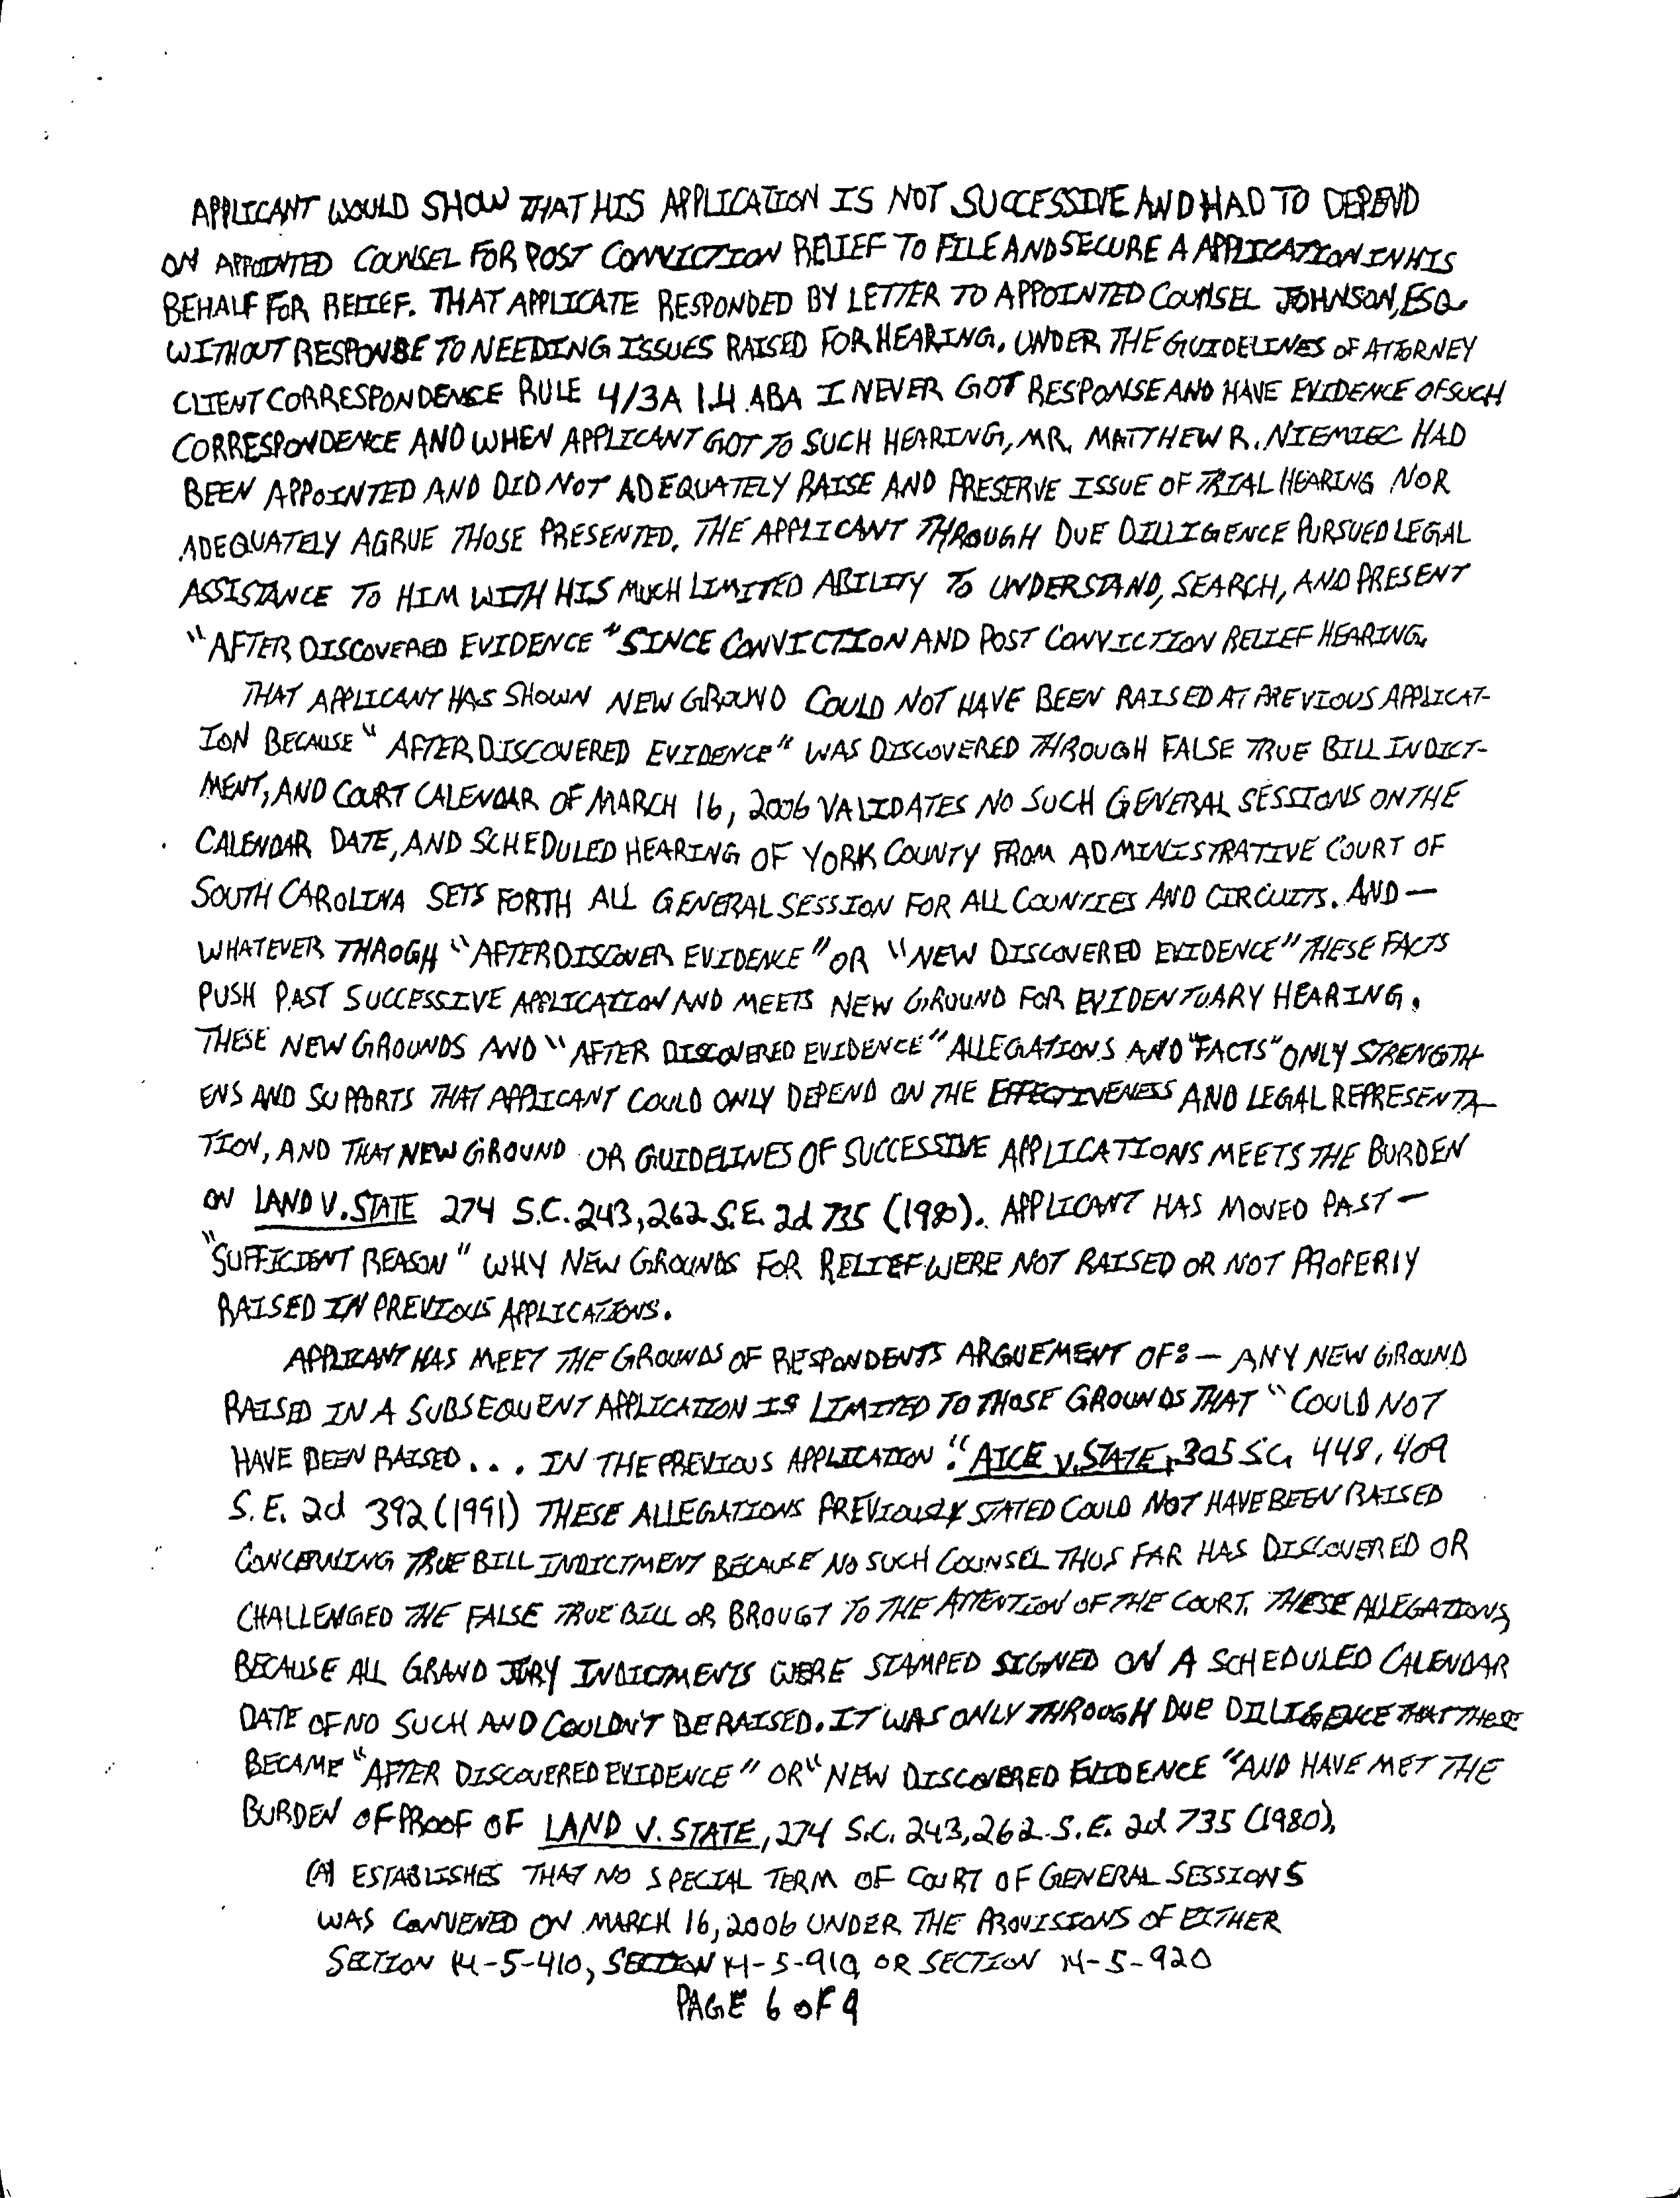 APPLICANT WOULD SHOW THAT HIS APPLICATION IS NOT SUCCESSIVE AND HAD TO DEPEND
ON APPOINTED COUNSEL FOR POST CONVICTION RELIEF TO FILE AND SECURE A APPLICATION IN HIS
BEHALF FOR RELIEF. THAT APPLICATE RESPONDED BY LETTER TO APPOINTED COUNSEL JOHNSON, ESQ.
WITHOUT RESPONSE TO NEEDING ISSUES RAISED FOR HEARING. UNDER THE GUIDELINES OF ATTORNEY
CLIENT CORRESPONDENCE RULE 4/3A 1.4 ABA I NEVER GOT RESPONSE AND HAVE EVIDENCE OF SUCH
CORRESPONDENCE AND WHEN APPLICANT GOT TO SUCH HEARING, MR. MATTHEW R. NIEMIEC HAD
BEEN APPOINTED AND DID NOT ADEQUATELY RAISE AND PRESERVE ISSUE OF TRIAL HEARING NOR
ADEQUATELY AGRUE THOSE PRESENTED. THE APPLICANT THROUGH DUE DILLIGENCE PURSUED LEGAL
ASSISTANCE TO HIM WITH HIS MUCH LIMITED ABILITY TO UNDERSTAND, SEARCH, AND PRESENT
"AFTER DISCOVERED EVIDENCE" SINCE CONVICTION AND POST CONVICTION RELIEF HEARING.
THAT APPLICANT HAS SHOWN NEW GROUND COULD NOT HAVE BEEN RAISED AT PREVIOUS APPLICAT-
ION BECAUSE "AFTER DISCOVERED EVIDENCE" WAS DISCOVERED THROUGH FALSE TRUE BILL INDICT-
MENT, AND COURT CALENDAR OF MARCH 16, 2006 VALIDATES NO SUCH GENERAL SESSIONS ON THE
CALENDAR DATE, AND SCHEDULED HEARING OF YORK COUNTY FROM ADMINISTRATIVE COURT OF
SOUTH CAROLINA SETS FORTH ALL GENERAL SESSION FOR ALL COUNTIES AND CIRCUITS. AND —
WHATEVER THROGH "AFTER DISCOVER EVIDENCE" OR "NEW DISCOVERED EVIDENCE" THESE FACTS
PUSH PAST SUCCESSIVE APPLICATION AND MEETS NEW GROUND FOR EVIDENTUARY HEARING.
THESE NEW GROUNDS AND "AFTER DISCOVERED EVIDENCE" ALLEGATIONS AND "FACTS" ONLY STRENGTH
ENS AND SUPPORTS THAT APPLICANT COULD ONLY DEPEND ON THE EFFECTIVENESS AND LEGAL REPRESENTA-
TION, AND THAT NEW GROUND OR GUIDELINES OF SUCCESSIVE APPLICATIONS MEETS THE BURDEN
ON LAND V. STATE 274 S.C. 243, 262 S.E. 2d 735 (1980). APPLICANT HAS MOVED PAST —
"SUFFICIENT REASON" WHY NEW GROUNDS FOR RELIEF WERE NOT RAISED OR NOT PROPERLY
RAISED IN PREVIOUS APPLICATIONS.
APPLICANT HAS MEET THE GROUNDS OF RESPONDENTS ARGUEMENT OF: — ANY NEW GROUND
RAISED IN A SUBSEQUENT APPLICATION IS LIMITED TO THOSE GROUNDS THAT "COULD NOT
HAVE BEEN RAISED... IN THE PREVIOUS APPLICATION." AICE V. STATE, 305 S.C. 448, 409
S.E. 2d 392 (1991) THESE ALLEGATIONS PREVIOUSLY STATED COULD NOT HAVE BEEN RAISED
CONCERNING TRUE BILL INDICTMENT BECAUSE NO SUCH COUNSEL THUS FAR HAS DISCOVERED OR
CHALLENGED THE FALSE TRUE BILL OR BROUGT TO THE ATTENTION OF THE COURT. THESE ALLEGATIONS,
BECAUSE ALL GRAND JURY INDICTMENTS WERE STAMPED SIGNED ON A SCHEDULED CALENDAR
DATE OF NO SUCH AND COULDN'T BE RAISED. IT WAS ONLY THROUGH DUE DILLIGENCE THAT THESE
BECAME "AFTER DISCOVERED EVIDENCE" OR "NEW DISCOVERED EVIDENCE" AND HAVE MET THE
BURDEN OF PROOF OF LAND V. STATE, 274 S.C. 243, 262 S.E. 2d 735 (1980).
(A) ESTABLISHES THAT NO SPECIAL TERM OF COURT OF GENERAL SESSIONS
WAS CONVENED ON MARCH 16, 2006 UNDER THE PROVISIONS OF EITHER
SECTION 14-5-410, SECTION 14-5-910, OR SECTION 14-5-920
PAGE 6 OF 9